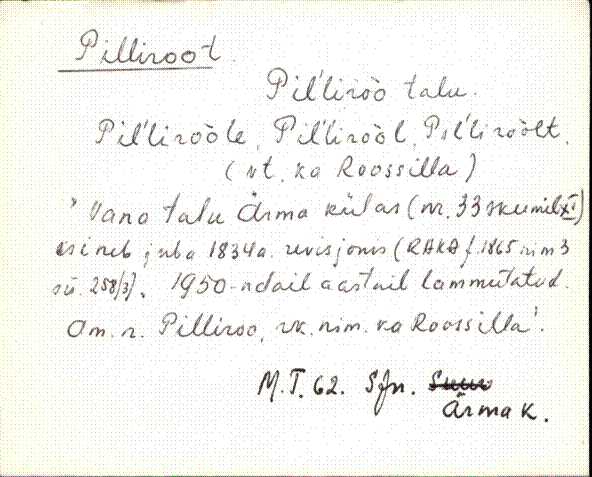 Pilliroot.
Pil'liroo talu.
Pil'liroole, Pil'lirool, Pil'liroolt.
(vt. ka Roossilla)
'Vana talu Ärma külas (nr. 33 skeemil XI)
esineb juba 1834 a. revisjonis (RAKA f. 1865 nim 3
sü. 258/3). 1950-ndail aastail lammutatud.
Am. n. Pilliroo, rk. nim. ka Roossilla'.
M.T. 62. Sfn.
Ärma k.